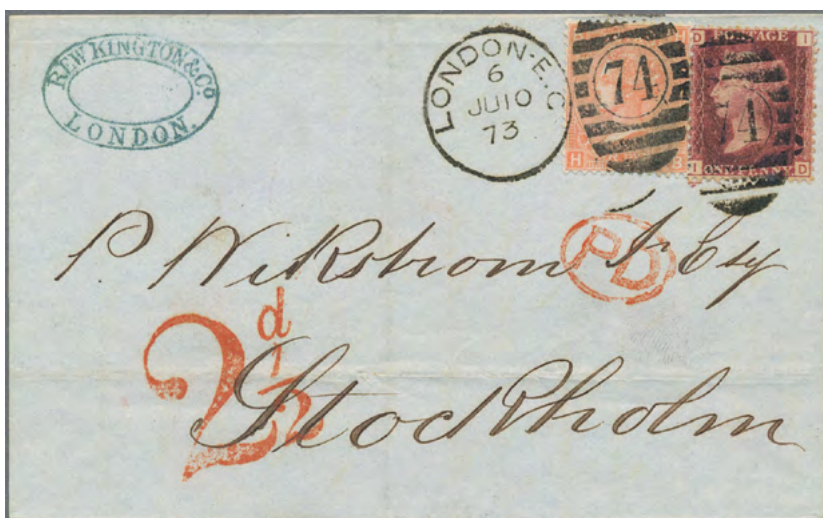 REW KINGTON & Co
LONDON.
LONDON·E.C
6
JU10
73
H
74
H B
D POSTAGE I
74
I ONE PENNY D
P Wikstrom Jr Esq
PD
2 d 1/2
Stockholm